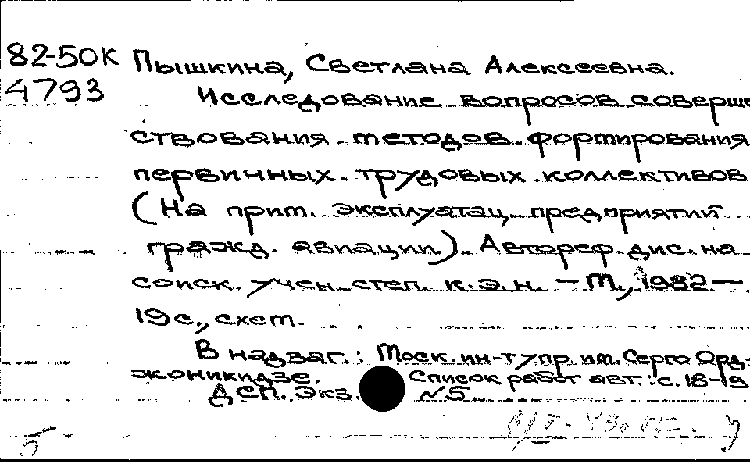 82-50К Пышкина, Светлана Алексеевна.
4793 Исследование вопросов соверше
ствования методов формирования
первичных трудовых коллективов
(На прим. эксплуатац. предприятий
гражд. авиации). Автореф. дис. на
соиск. учен. степ. к.э.н. — М., 1982 —
19 с., схем.
В надзаг.: Моск. ин-т упр. им. Серго Орд-
жоникидзе. Список работ авт.: с. 18-19
ДСП. Экз. №5